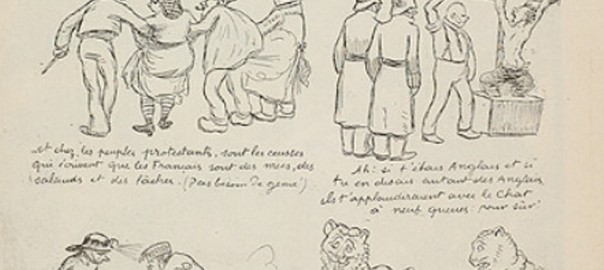 et chez les peuples protestants, sont les causses
qui écrivent que les Français sont des mers, des
salauds et des lâches. (Pas besoin de génie)
Ah! si t'étais Anglais et si
tu en disais autant des Anglais,
ils t'applaudiraient avec le Chat
à neuf queues. pour sûr